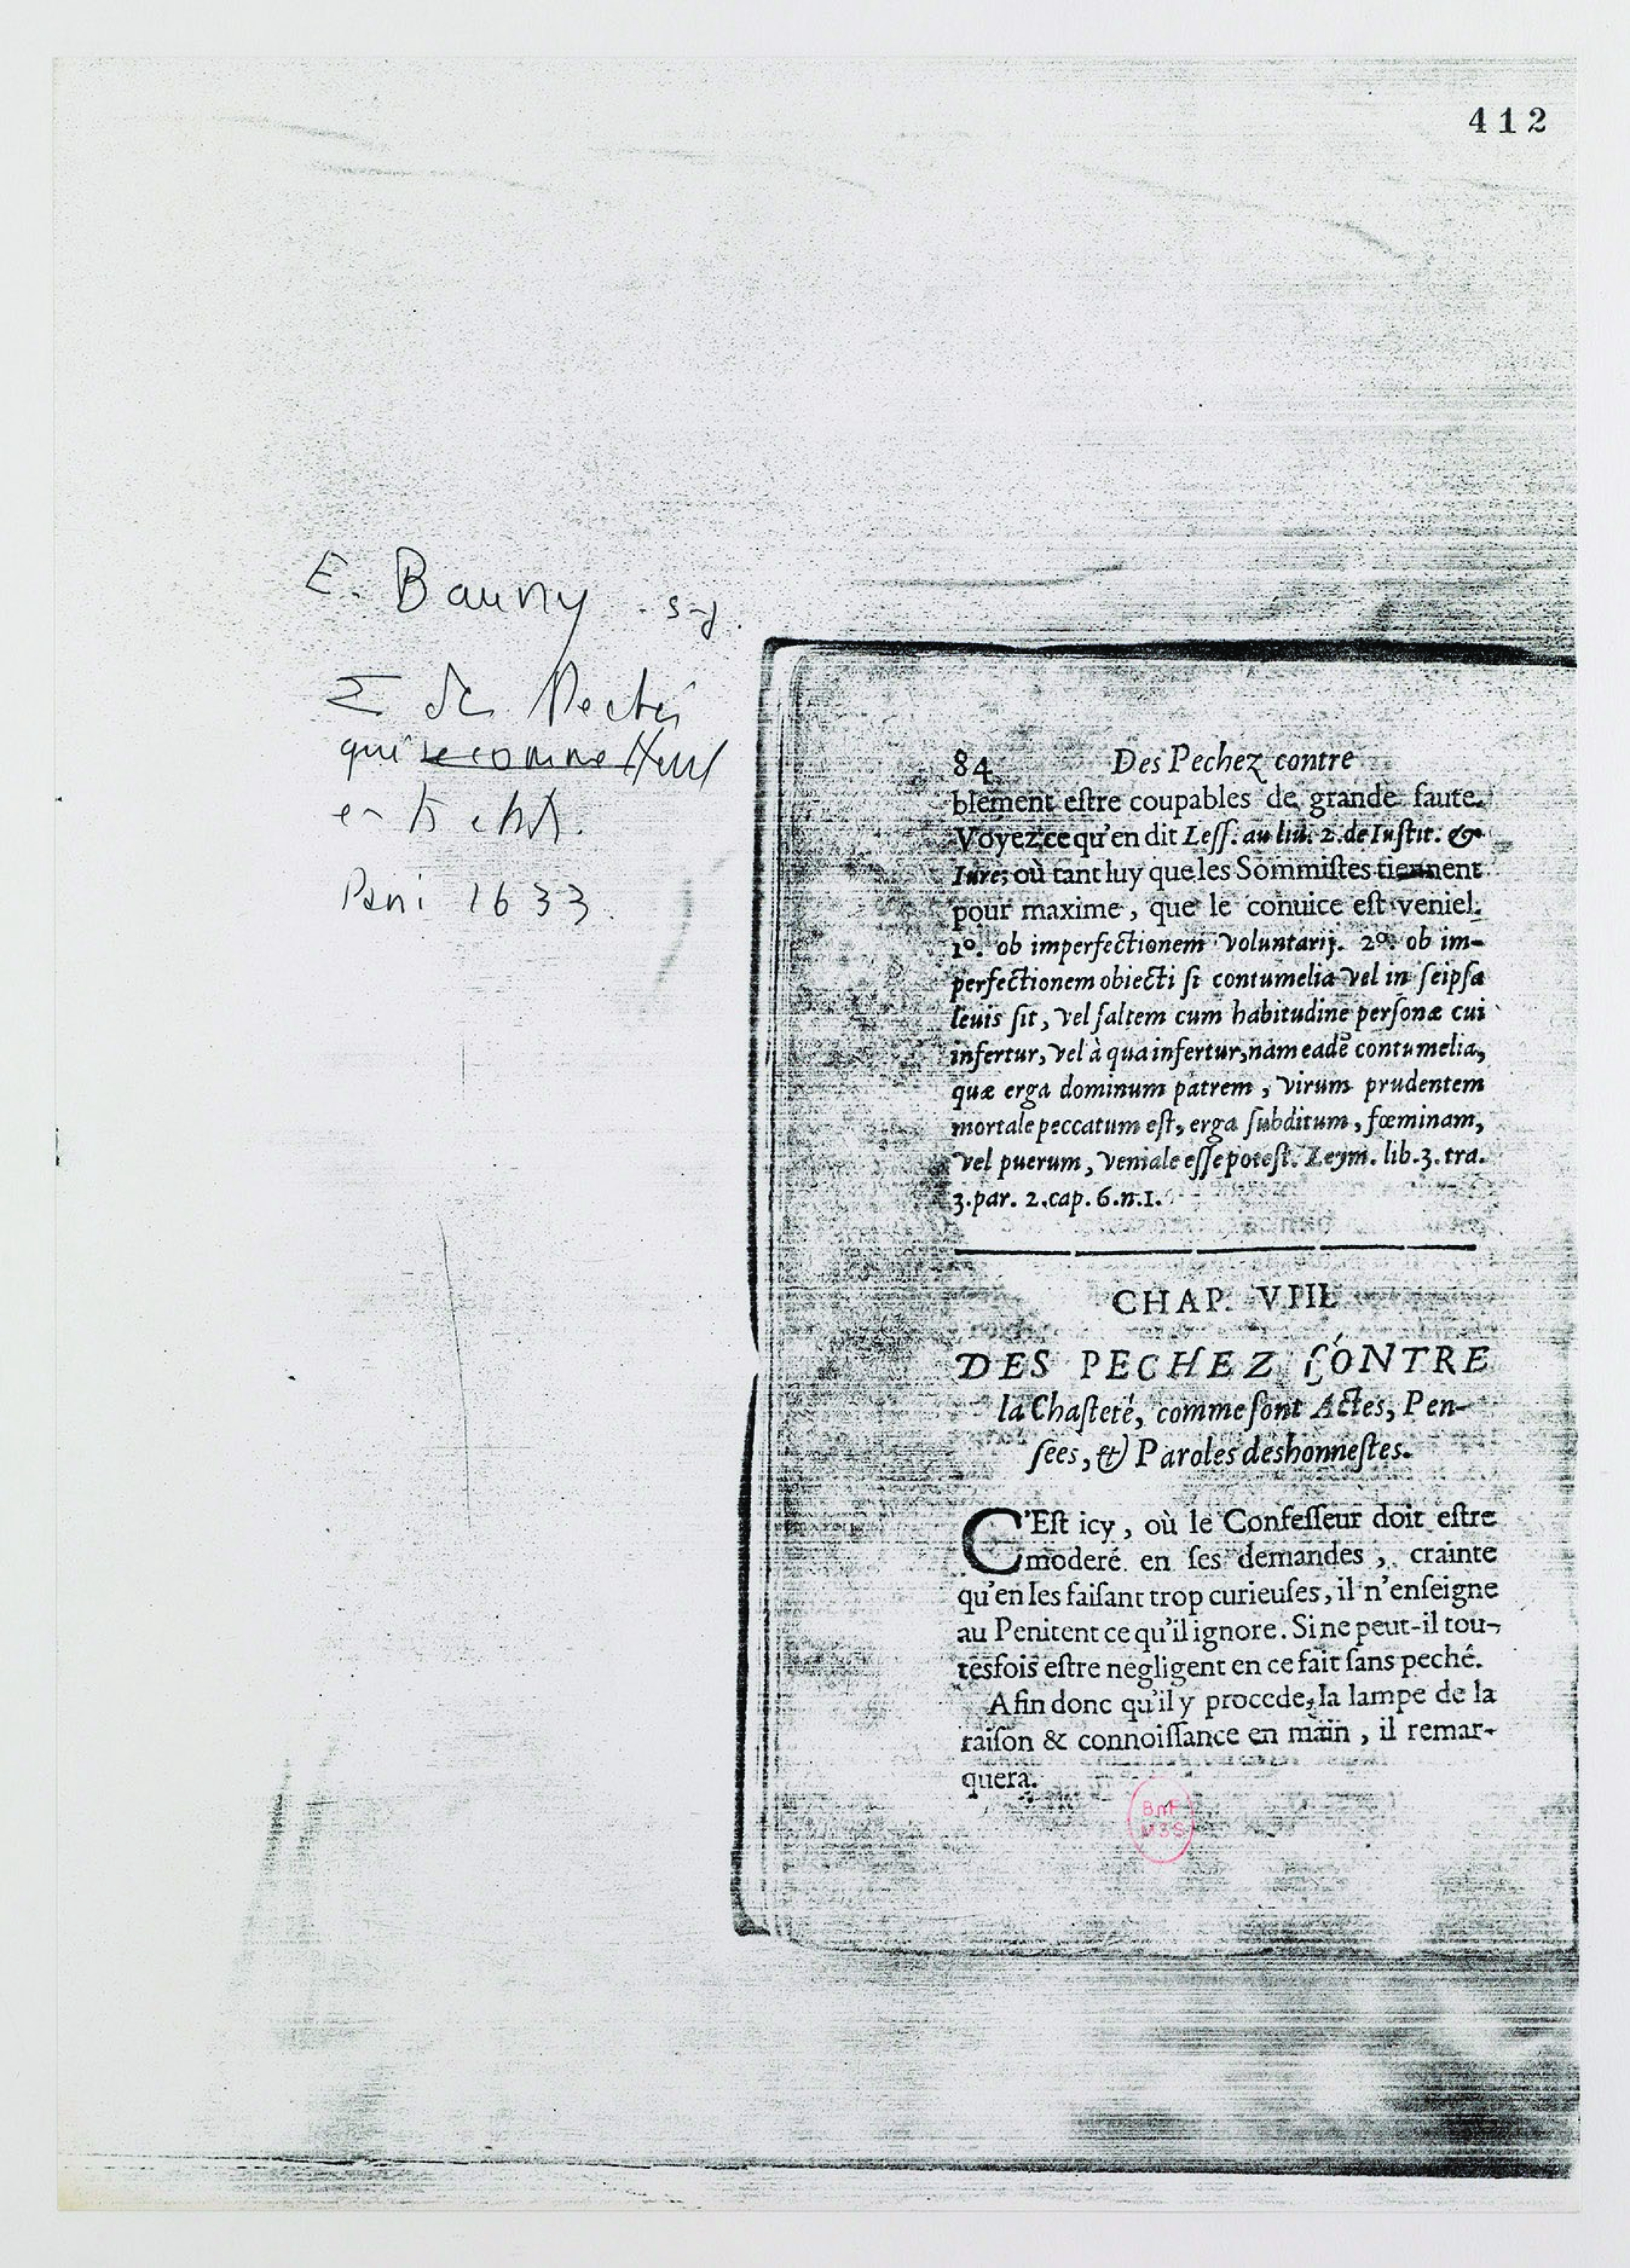 412
E. Bauny . s-j.
Σ des Pechés
qui se commettent
en ts états.
Paris 1633.
84 Des Pechez contre
blement eſtre coupables de grande faute.
Voyez ce qu'en dit Leſſ. au liu. 2. de Iuſtit. &
Iure; où tant luy que les Sommiſtes tiennent
pour maxime, que le conuice eſt veniel.
1º. ob imperfectionem voluntarij. 2º. ob im-
perfectionem obiecti ſi contumelia vel in ſeipſa
leuis ſit, vel ſaltem cum habitudine perſonæ cui
infertur, vel à qua infertur, nam eadē contumelia,
quæ erga dominum patrem, virum prudentem
mortale peccatum eſt, erga ſubditum, fœminam,
vel puerum, veniale eſſe poteſt. Leym. lib. 3. tra.
3. par. 2. cap. 6. n. 1.
CHAP. VIII.
DES PECHEZ CONTRE
la Chaſteté, comme ſont Actes, Pen-
ſées, & Paroles deshonneſtes.
C'Eſt icy, où le Confeſſeur doit eſtre
moderé en ſes demandes, crainte
qu'en les faiſant trop curieuſes, il n'enſeigne
au Penitent ce qu'il ignore. Si ne peut-il tou-
tesfois eſtre negligent en ce fait ſans peché.
Afin donc qu'il y procede, la lampe de la
raiſon & connoiſſance en main, il remar-
quera.
BnF
MSS